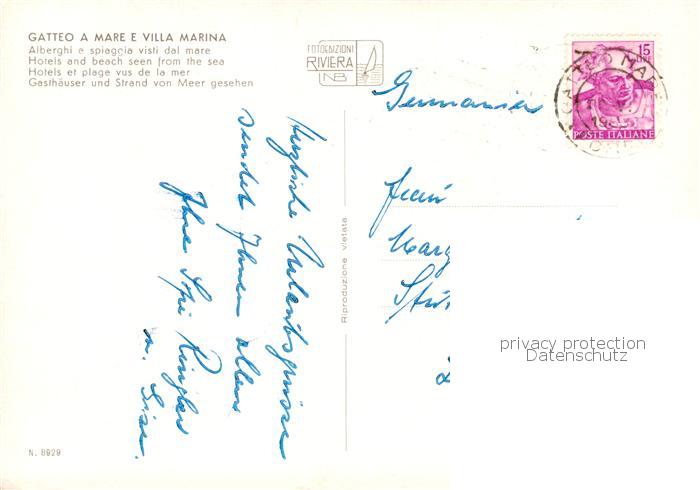 GATTEO A MARE E VILLA MARINA
Alberghi e spiaggia visti dal mare
Hotels and beach seen from the sea
Hotels et plage vus de la mer
Gasthäuser und Strand von Meer gesehen
FOTOEDIZIONI
RIVIERA
NB
15
POSTE ITALIANE
GATTEO MA
Germanien
Herzliche Urlaubsgrüsse
sendet Ihnen allen
Ihre
u.
Riproduzione vietata
Frau
Marg
privacy protection
Datenschutz
N. 8929